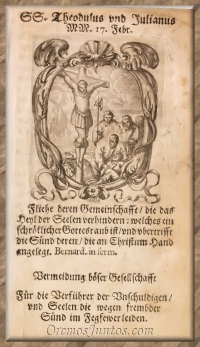 SS. Theodulus vnd Julianus
MM. 17. Febr.
Fliehe deren Gemeinschafft / die das
Heyl der Seelen verhindern: welches ein
schröcklicher Gottesraub ist / und vbertrifft
die Sünd deren / die an Christum Hand
angelegt. Bernard. in serm.
Vermeidung böser Gesellschafft
Für die Verführer der Vnschuldigen /
vnd Seelen die wegen frembder
Sünd im Fegfewer leiden.
OremosJuntos.com